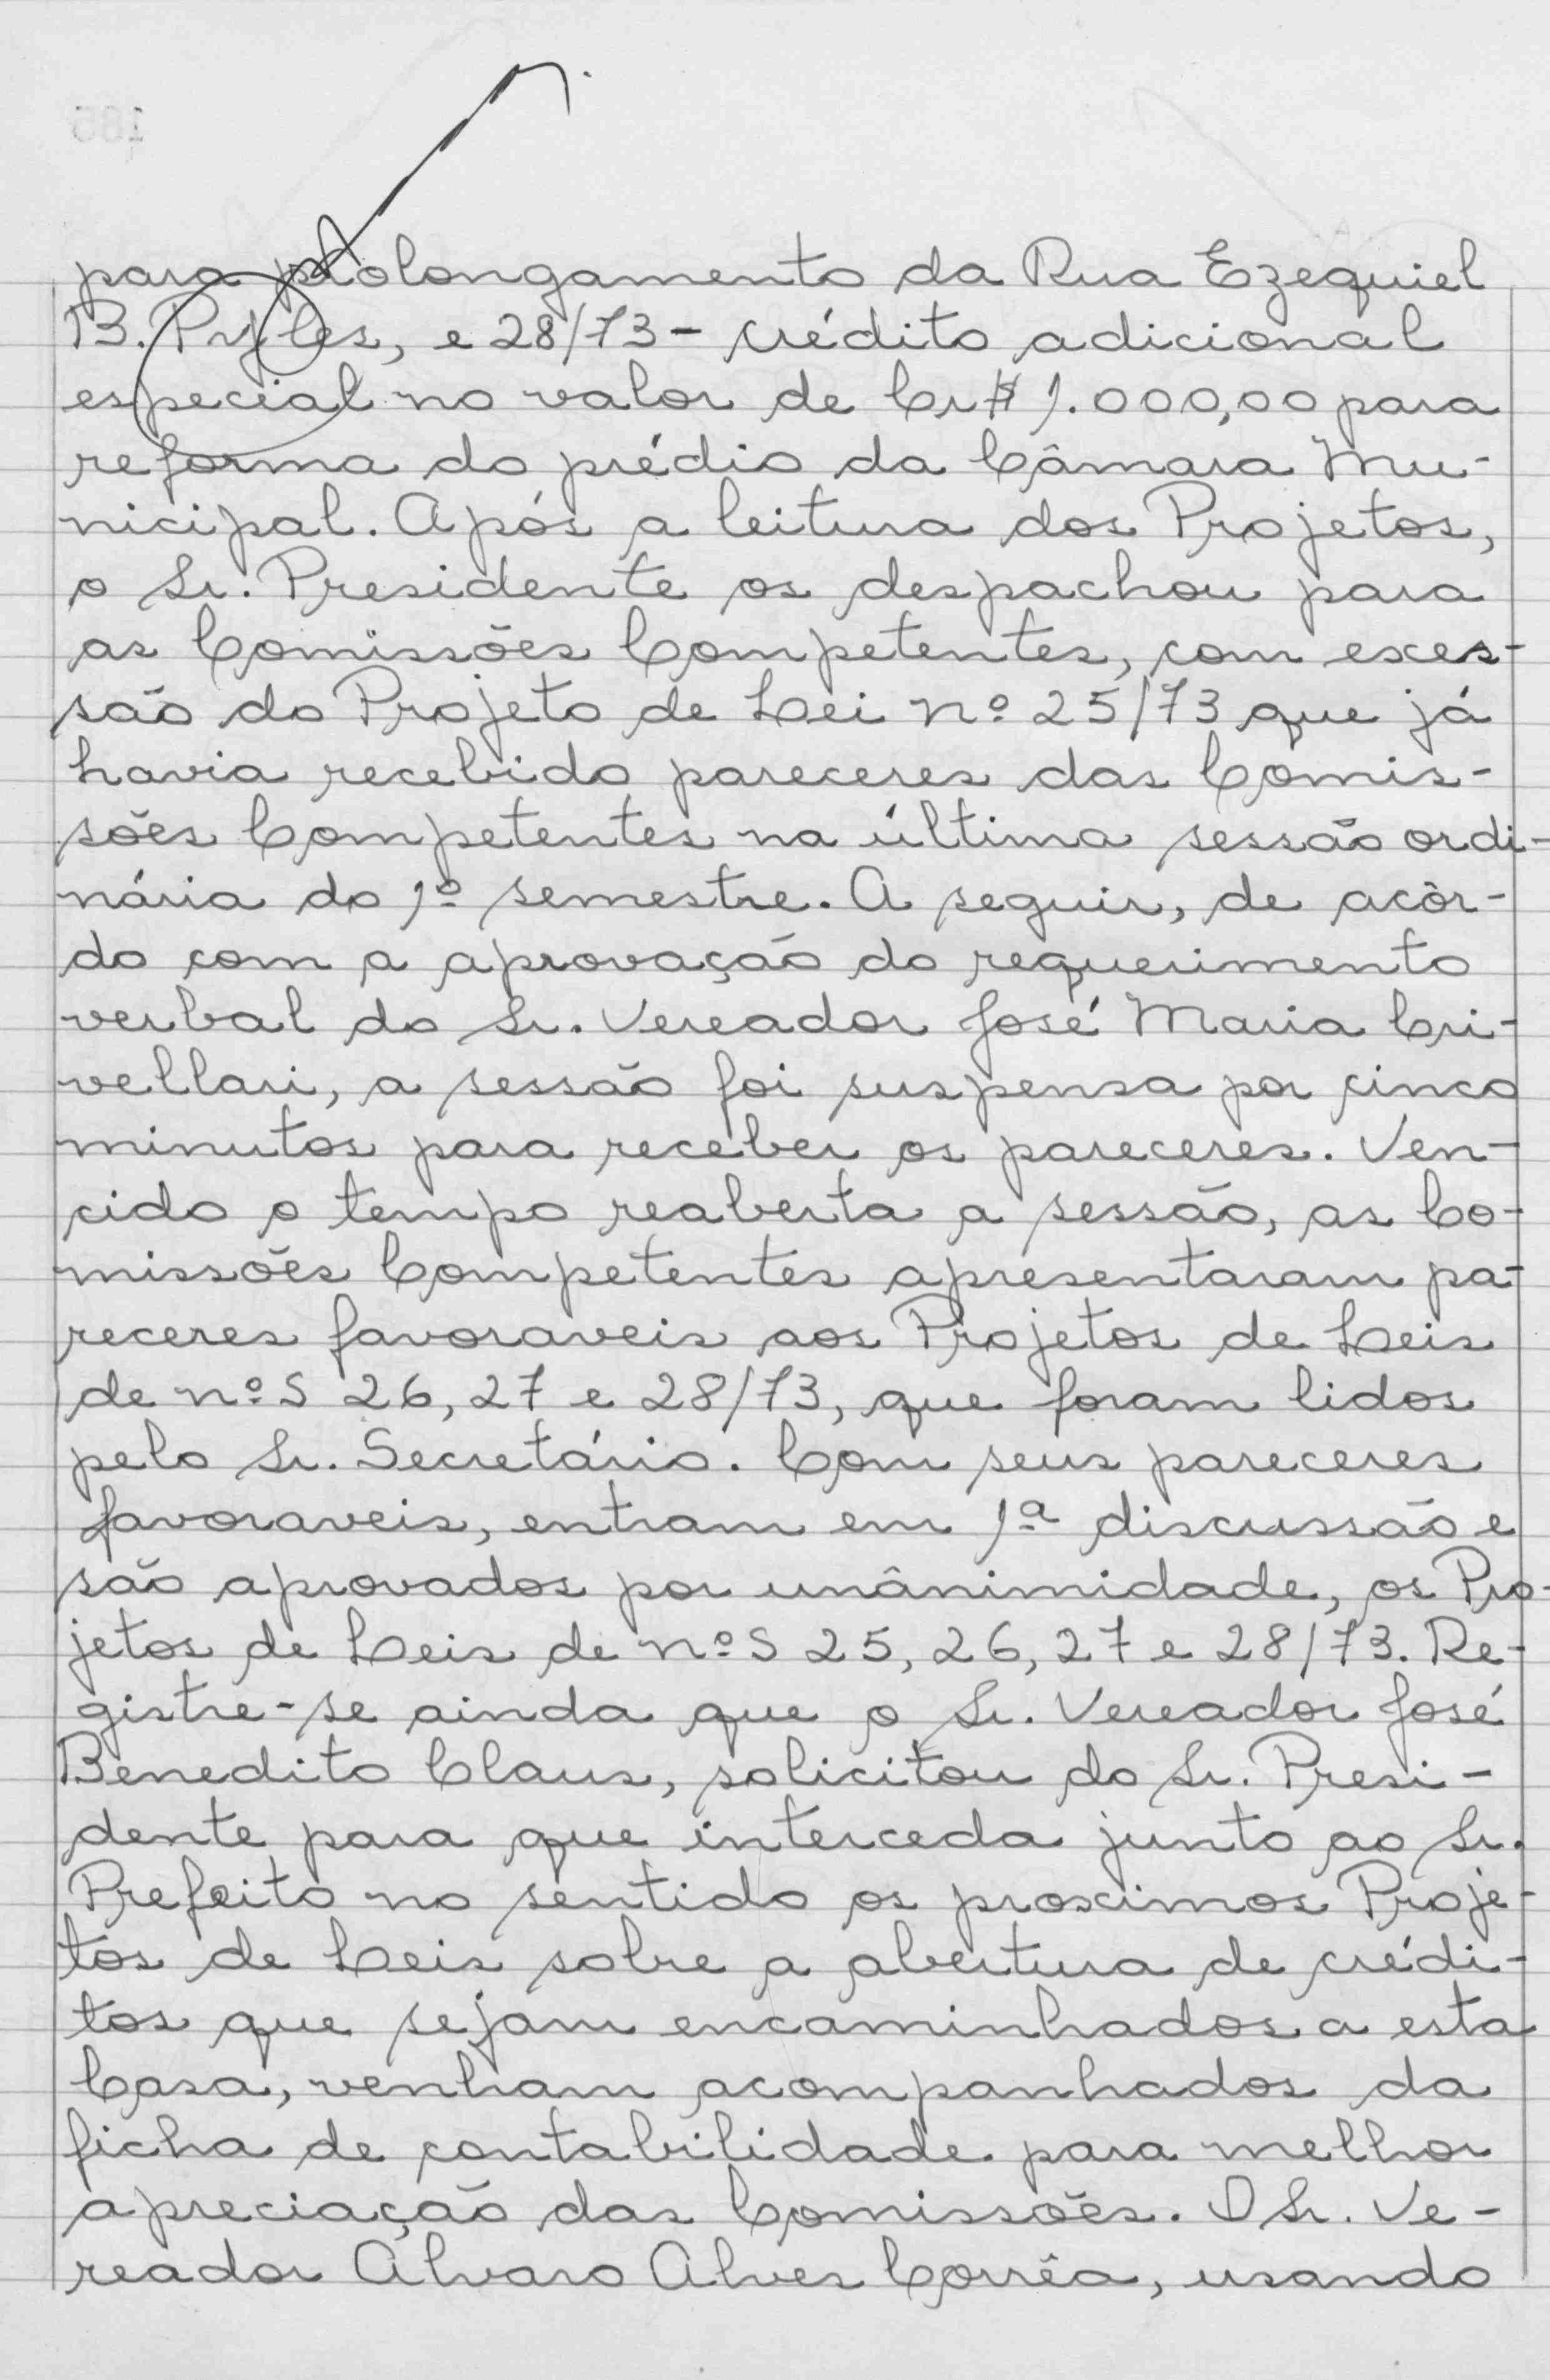 para prolongamento da Rua Ezequiel
B. Pyles, e 28/73 - crédito adicional
especial no valor de Cr$ 1.000,00 para
reforma do prédio da Câmara Mu-
nicipal. Após a leitura dos Projetos,
o Sr. Presidente os despachou para
as Comissões Competentes, com exces-
são do Projeto de Lei nº 25/73 que já
havia recebido pareceres das Comis-
sões Competentes na última sessão ordi-
nária do 1º semestre. A seguir, de acôr-
do com a aprovação do requerimento
verbal do Sr. Vereador José Maria Cri-
vellari, a sessão foi suspensa por cinco
minutos para receber os pareceres. Ven-
cido o tempo reaberta a sessão, as Co-
missões Competentes apresentaram pa-
receres favoraveis aos Projetos de Leis
de nºs 26, 27 e 28/73, que foram lidos
pelo Sr. Secretário. Com seus pareceres
favoraveis, entram em 1ª discussão e
são aprovados por unânimidade, os Pro-
jetos de Leis de nºs 25, 26, 27 e 28/73. Re-
gistre-se ainda que o Sr. Vereador José
Benedito Claus, solicitou do Sr. Presi-
dente para que interceda junto ao Sr.
Prefeito no sentido os proximos Proje-
tos de Leis sobre a abertura de crédi-
tos que sejam encaminhados a esta
Casa, venham acompanhados da
ficha de contabilidade para melhor
apreciação das Comissões. O Sr. Ve-
reador Álvaro Alves Corrêa, usando